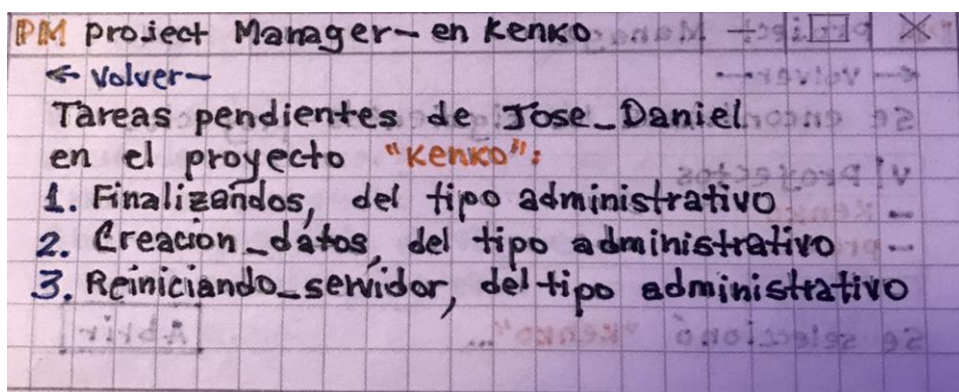 PM Project Manager- en Kenko
← Volver-
Tareas pendientes de Jose_Daniel
en el proyecto "Kenko":
1. Finalizandos, del tipo administrativo
2. Creacion_datos, del tipo administrativo
3. Reiniciando_servidor, del tipo administrativo